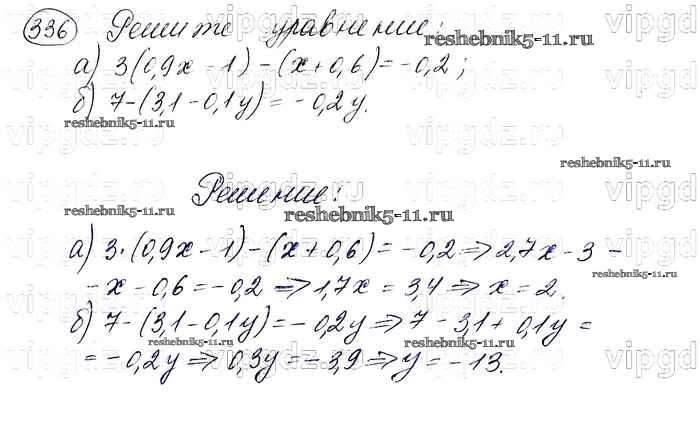 336 Решите уравнение:
reshebnik5-11.ru
а) 3(0,9x - 1) - (x + 0,6) = -0,2;
б) 7 - (3,1 - 0,1y) = -0,2y.
reshebnik5-11.ru
reshebnik5-11.ru
Решение:
reshebnik5-11.ru
а) 3·(0,9x - 1) - (x + 0,6) = -0,2 ⇒ 2,7x - 3 -
reshebnik5-11.ru
- x - 0,6 = -0,2 ⇒ 1,7x = 3,4 ⇒ x = 2.
б) 7 - (3,1 - 0,1y) = -0,2y ⇒ 7 - 3,1 + 0,1y =
reshebnik5-11.ru
reshebnik5-11.ru
= -0,2y ⇒ 0,3y = -3,9 ⇒ y = -13.
vipgdz.ru